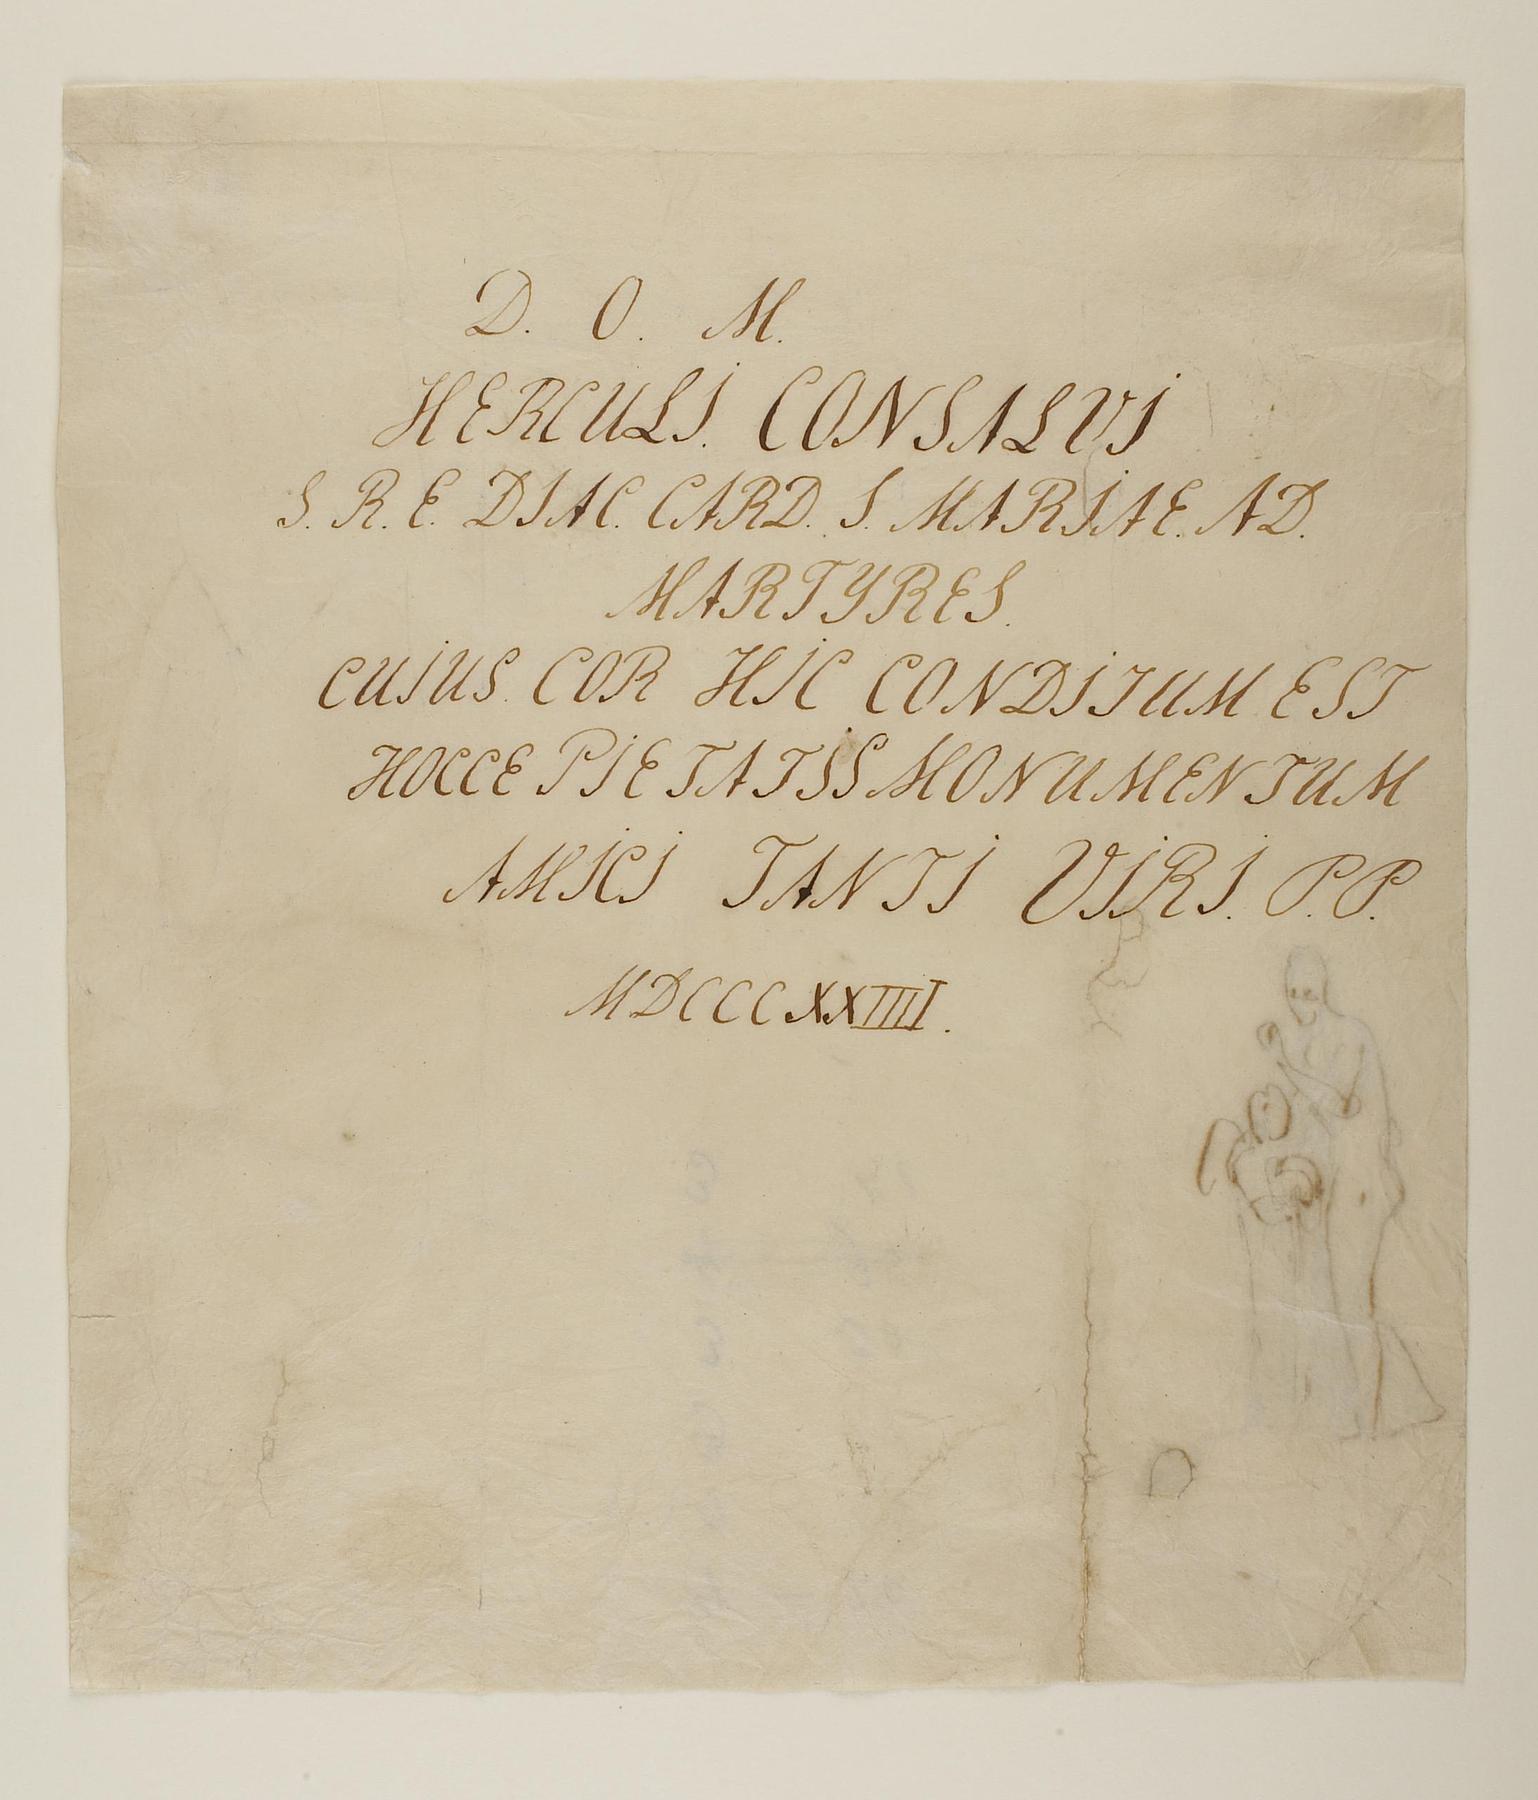 D. O. M.
HERCULI. CONSALVI
S. R. E. DIAC. CARD. S. MARIAE. AD.
MARTYRES.
CUIUS. COR HIC CONDITUM EST
HOCCE PIETATIS MONUMENTUM
AMICI TANTI VIRI. P. P.
MDCCCXXIIII.